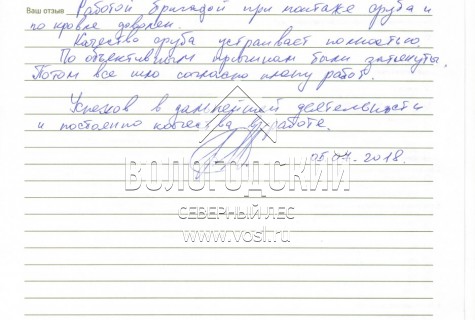 Ваш отзыв Работой бригадой при монтаже сруба и
по кровле доволен.
Качество сруба устраивает полностью.
По объективным причинам были затянуты.
Потом все шло согласно плану работ.
Успехов в дальнейшей деятельности
и постоянно качества в работе.
05.04.2018.
ВОЛОГОДСКИЙ
СЕВЕРНЫЙ ЛЕС
www.vosl.ru